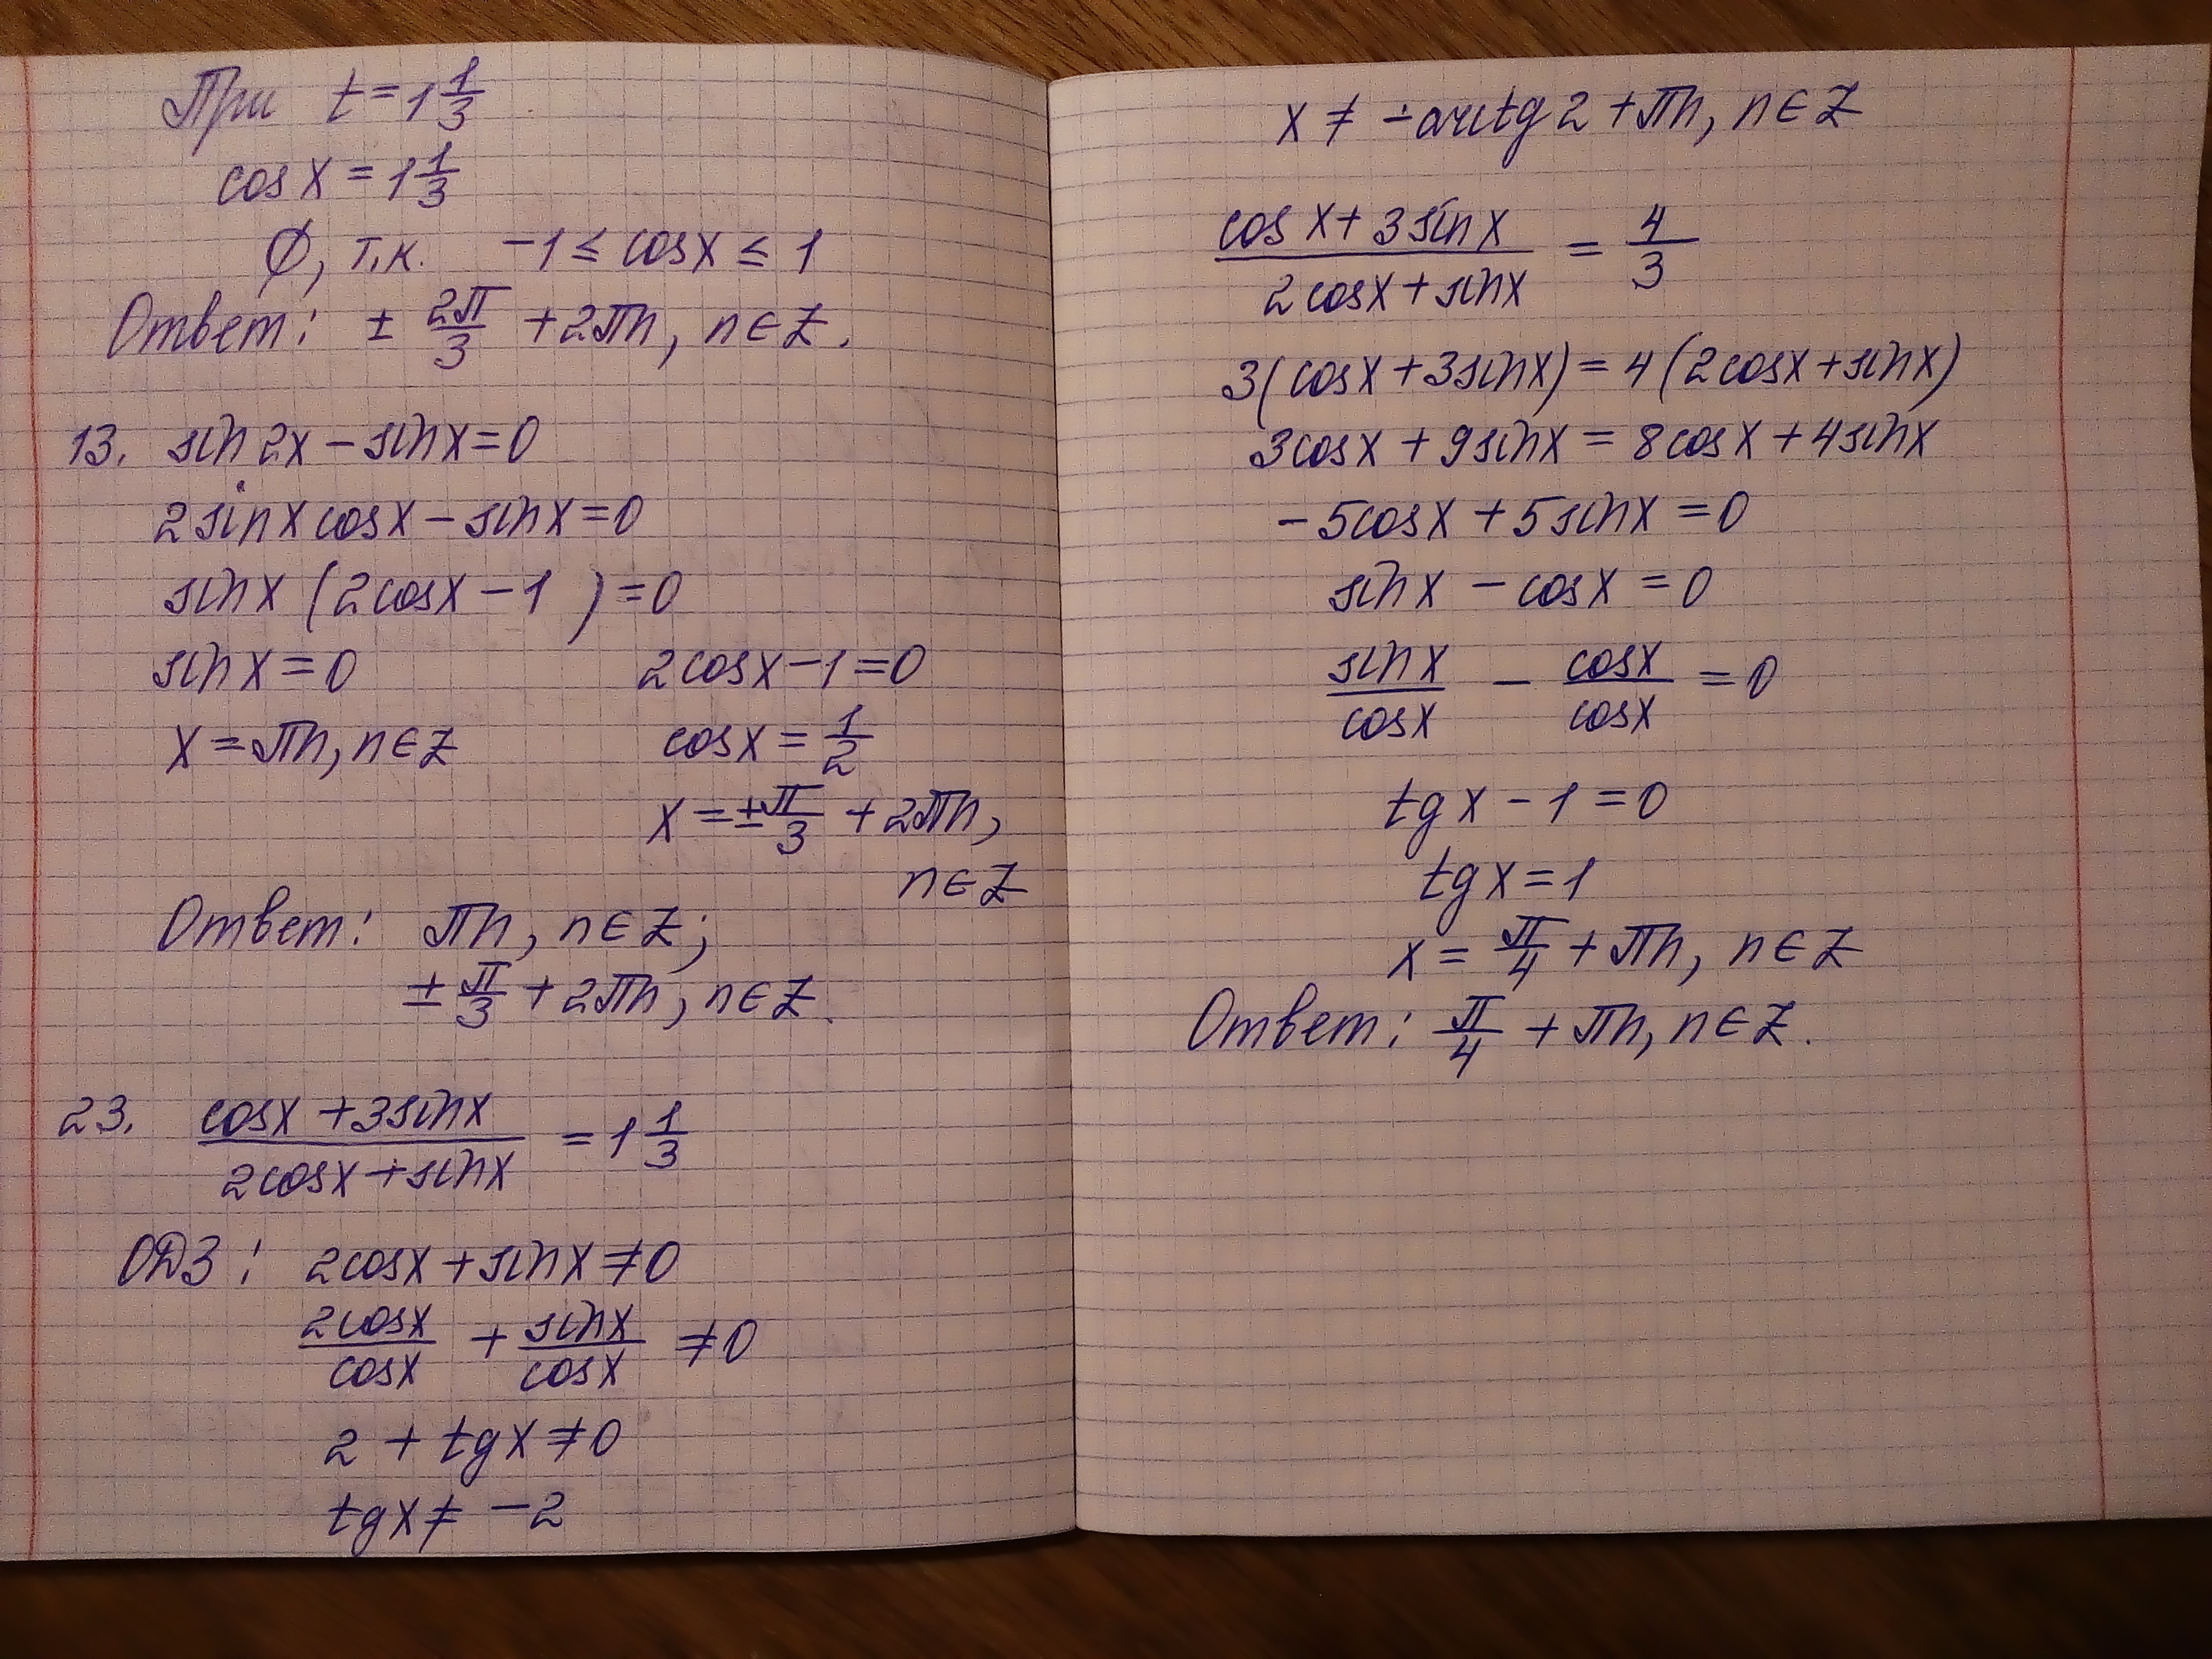 При t = 1 1/3
cos x = 1 1/3
∅, т.к. -1 ≤ cos x ≤ 1
Ответ: ± 2π/3 + 2πn, n ∈ Z.
13. sin 2x - sin x = 0
2 sin x cos x - sin x = 0
sin x (2cos x - 1) = 0
sin x = 0 2cos x - 1 = 0
x = πn, n ∈ Z cos x = 1/2
x = ± π/3 + 2πn,
n ∈ Z
Ответ: πn, n ∈ Z;
± π/3 + 2πn, n ∈ Z.
23. (cos x + 3 sin x)/(2cos x + sin x) = 1 1/3
ОДЗ: 2cos x + sin x ≠ 0
2cos x/cos x + sin x/cos x ≠ 0
2 + tg x ≠ 0
tg x ≠ -2
x ≠ -arctg 2 + πn, n ∈ Z
(cos x + 3 sin x)/(2 cos x + sin x) = 4/3
3(cos x + 3 sin x) = 4(2cos x + sin x)
3cos x + 9 sin x = 8 cos x + 4 sin x
-5cos x + 5 sin x = 0
sin x - cos x = 0
sin x/cos x - cos x/cos x = 0
tg x - 1 = 0
tg x = 1
x = π/4 + πn, n ∈ Z
Ответ: π/4 + πn, n ∈ Z.